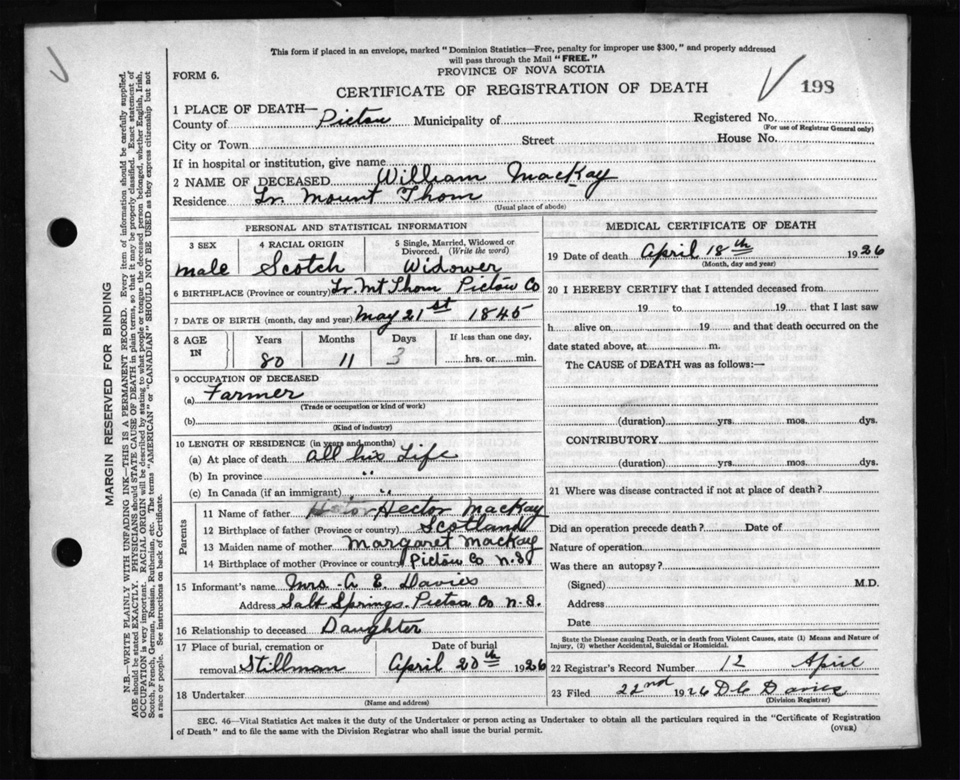 This form if placed in an envelope, marked "Dominion Statistics—Free, penalty for improper use $300," and properly addressed
will pass through the Mail "FREE."
PROVINCE OF NOVA SCOTIA
FORM 6.
CERTIFICATE OF REGISTRATION OF DEATH
198
1 PLACE OF DEATH—
County of Pictou Municipality of Registered No.
(For use of Registrar General only)
City or Town Street House No.
If in hospital or institution, give name
2 NAME OF DECEASED William MacKay
Residence Lr. Mount Thom
(Usual place of abode)
PERSONAL AND STATISTICAL INFORMATION
3 SEX 4 RACIAL ORIGIN 5 Single, Married, Widowed or Divorced. (Write the word)
male Scotch Widower
6 BIRTHPLACE (Province or country) Lr. Mt Thom Pictou Co
7 DATE OF BIRTH (month, day and year) May 21st 1845
8 AGE IN Years Months Days If less than one day,
80 11 3 hrs. or min.
9 OCCUPATION OF DECEASED
(a) Farmer
(Trade or occupation or kind of work)
(b)
(Kind of industry)
10 LENGTH OF RESIDENCE (in years and months)
(a) At place of death all his Life
(b) In province "
(c) In Canada (if an immigrant) "
Parents
11 Name of father Hector MacKay
12 Birthplace of father (Province or country) Scotland
13 Maiden name of mother Margaret MacKay
14 Birthplace of mother (Province or country) Pictou Co N.S.
15 Informant's name Mrs. A E. Davies
Address Salt Springs. Pictou Co N.S.
16 Relationship to deceased Daughter
17 Place of burial, cremation or removal Stillman
Date of burial April 20th 1926
18 Undertaker
(Name and address)
MEDICAL CERTIFICATE OF DEATH
19 Date of death April 18th 1926
(Month, day and year)
20 I HEREBY CERTIFY that I attended deceased from
19 to 19 that I last saw
h alive on 19 and that death occurred on the
date stated above, at m.
The CAUSE of DEATH was as follows:—
(duration) yrs. mos. dys.
CONTRIBUTORY
(duration) yrs. mos. dys.
21 Where was disease contracted if not at place of death?
Did an operation precede death? Date of
Nature of operation
Was there an autopsy?
(Signed) M.D.
Address
Date
State the Disease causing Death, or in death from Violent Causes, state (1) Means and Nature of
Injury, (2) whether Accidental, Suicidal or Homicidal.
22 Registrar's Record Number 12 April
23 Filed 22nd 1926 Davies
(Division Registrar)
SEC. 46—Vital Statistics Act makes it the duty of the Undertaker or person acting as Undertaker to obtain all the particulars required in the "Certificate of Registration
of Death" and to file the same with the Division Registrar who shall issue the burial permit.
(OVER)
MARGIN RESERVED FOR BINDING
N.B.—WRITE PLAINLY WITH UNFADING INK—THIS IS A PERMANENT RECORD. Every item of information should be carefully supplied.
AGE should be stated EXACTLY. PHYSICIANS should STATE CAUSE OF DEATH in plain terms, so that it may be properly classified. Exact statement of
OCCUPATION is very important. RACIAL ORIGIN will be described by stating to what people or tongue the deceased person belonged, whether English, Irish,
Scotch, French, German, Russian, Ruthenian, etc. The terms "AMERICAN" or "CANADIAN" SHOULD NOT BE USED as they express citizenship but not
a race or people. See instructions on back of Certificate.